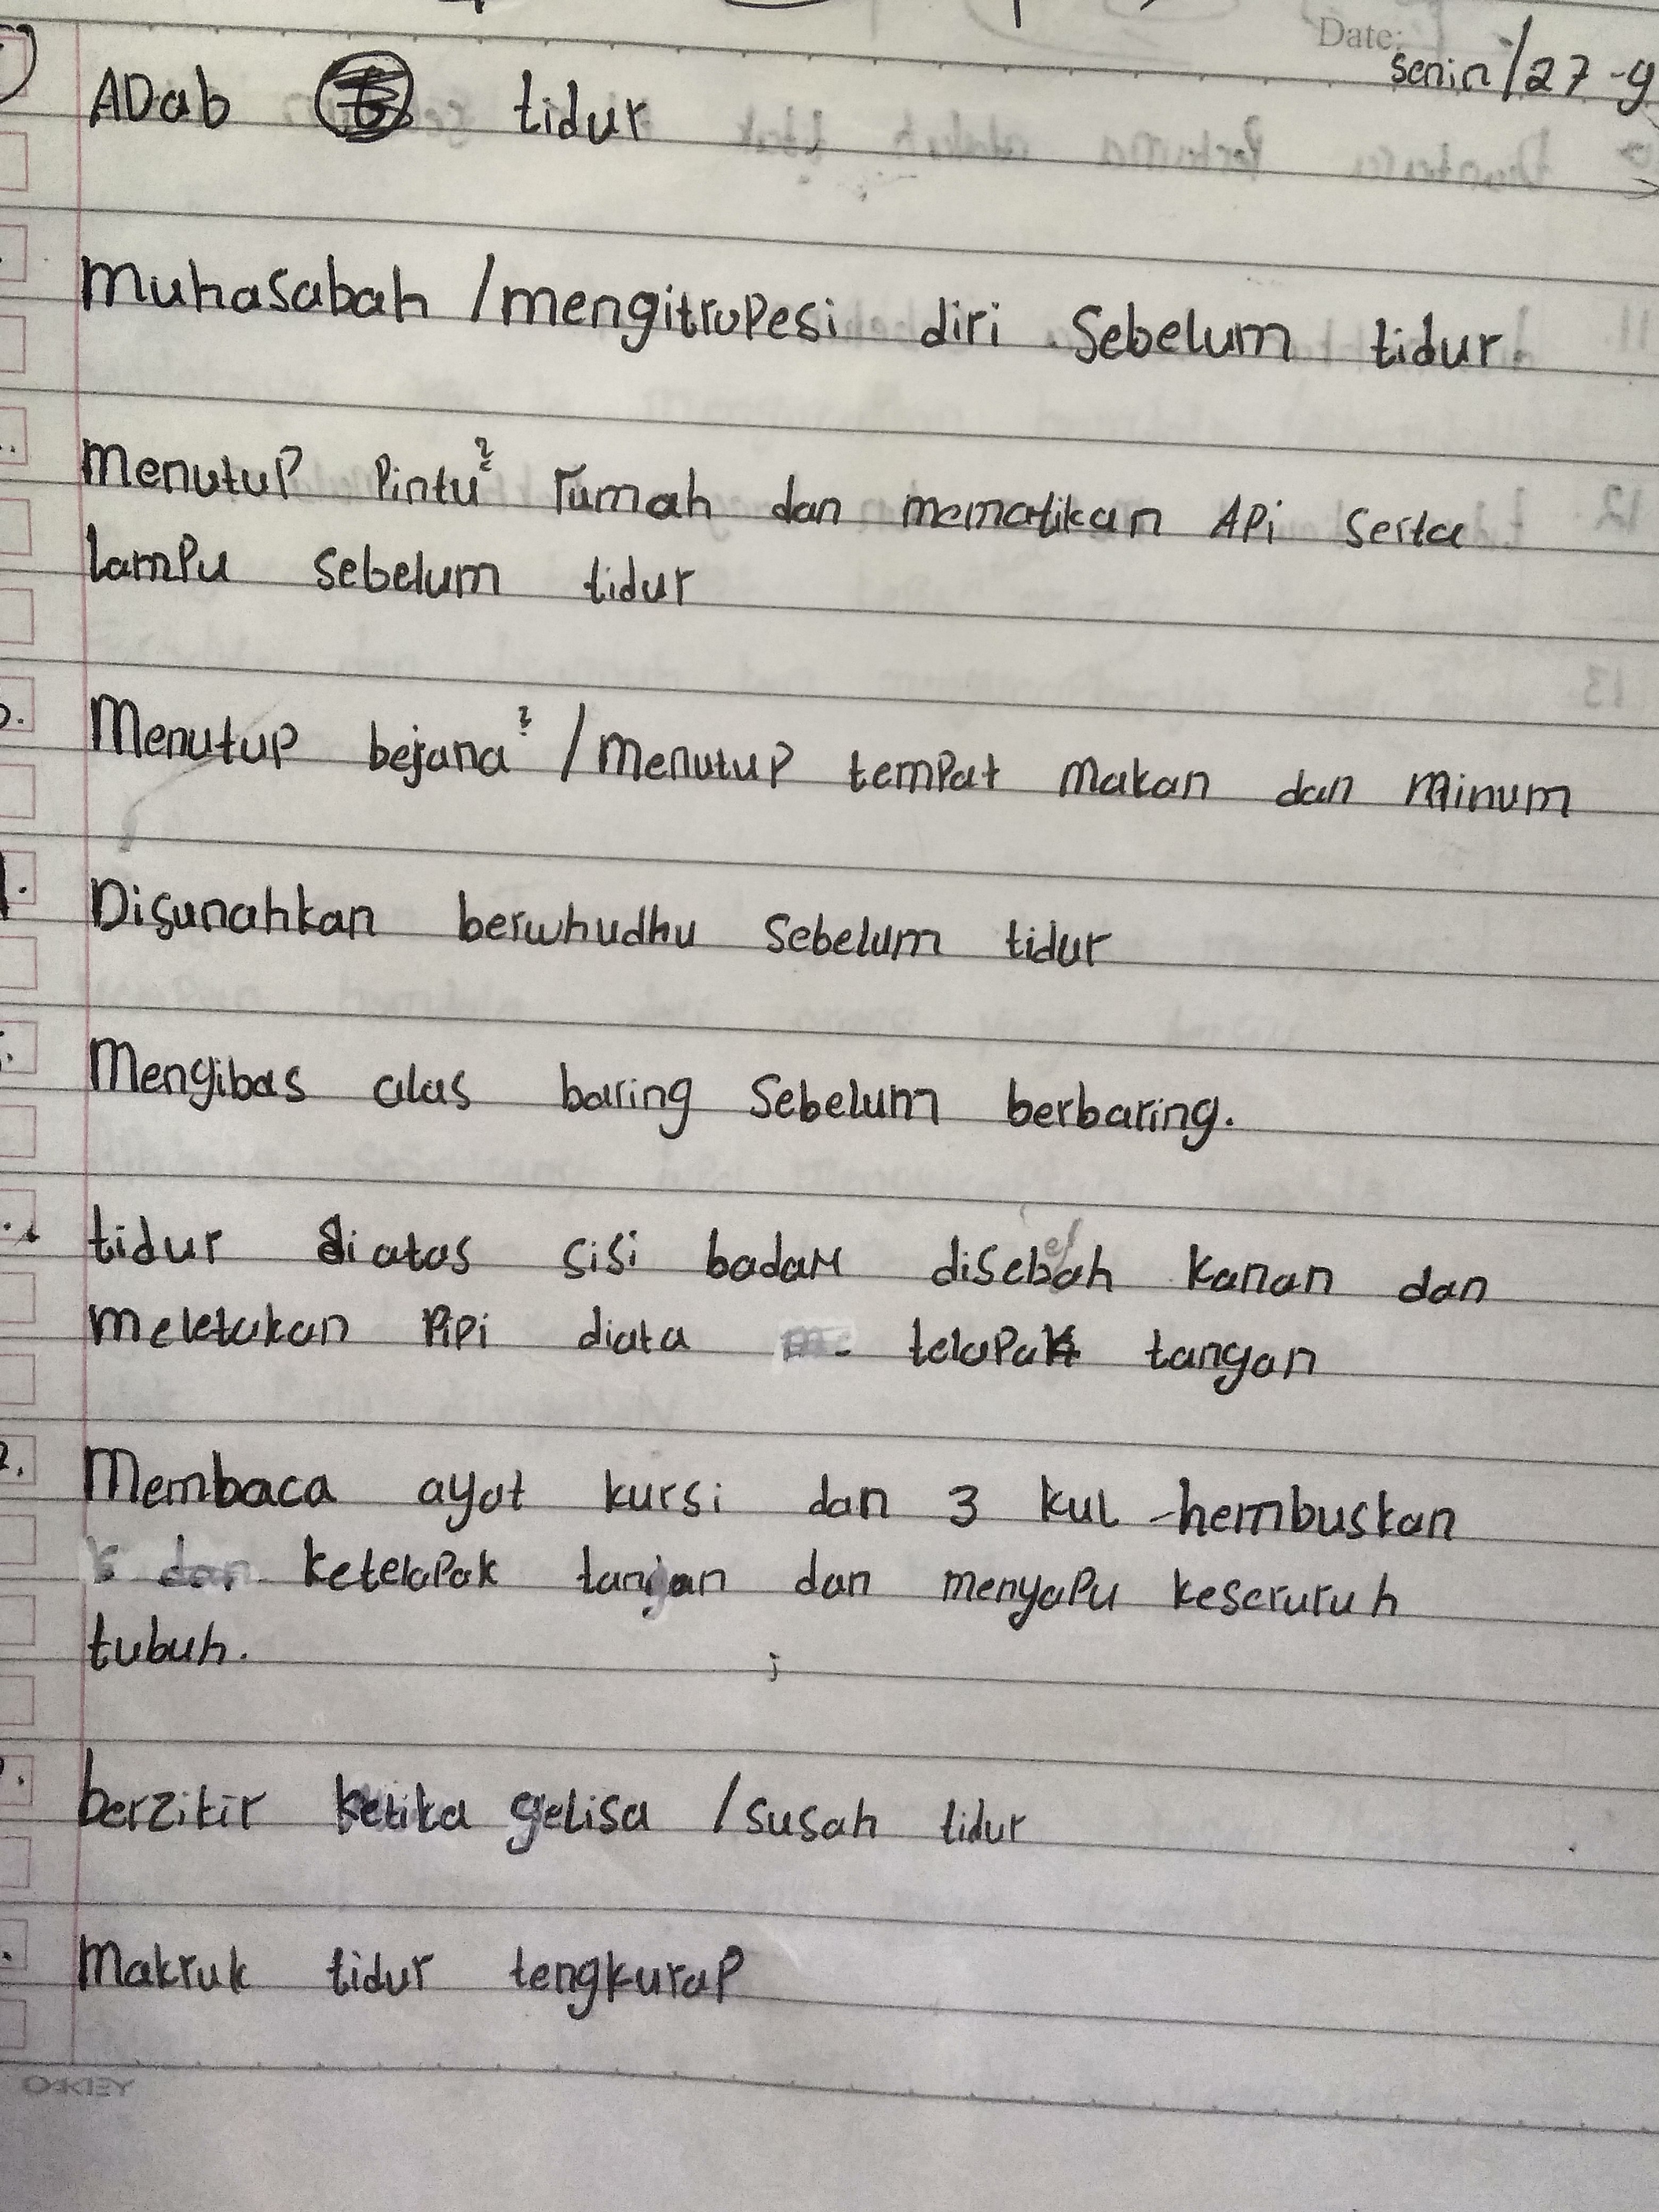 Date:
Senin/27-9
ADab tidur
Muhasabah /mengitrupesi diri Sebelum tidur.
Menutup Pintu² rumah dan mematikan Api serta
lampu sebelum tidur
Menutup bejana² /Menutup tempat makan dan minum
Disunahkan berwhudhu Sebelum tidur
Mengibas alas baring Sebelum berbaring.
tidur diatas sisi badan disebelah kanan dan
meletakan Pipi diata telapak tangan
Membaca ayat kursi dan 3 kul hembuskan
ketelapak tangan dan menyapu keseruruh
tubuh.
berzikir ketika gelisa /susah tidur
Makruk tidur tengkurap
OAKEY